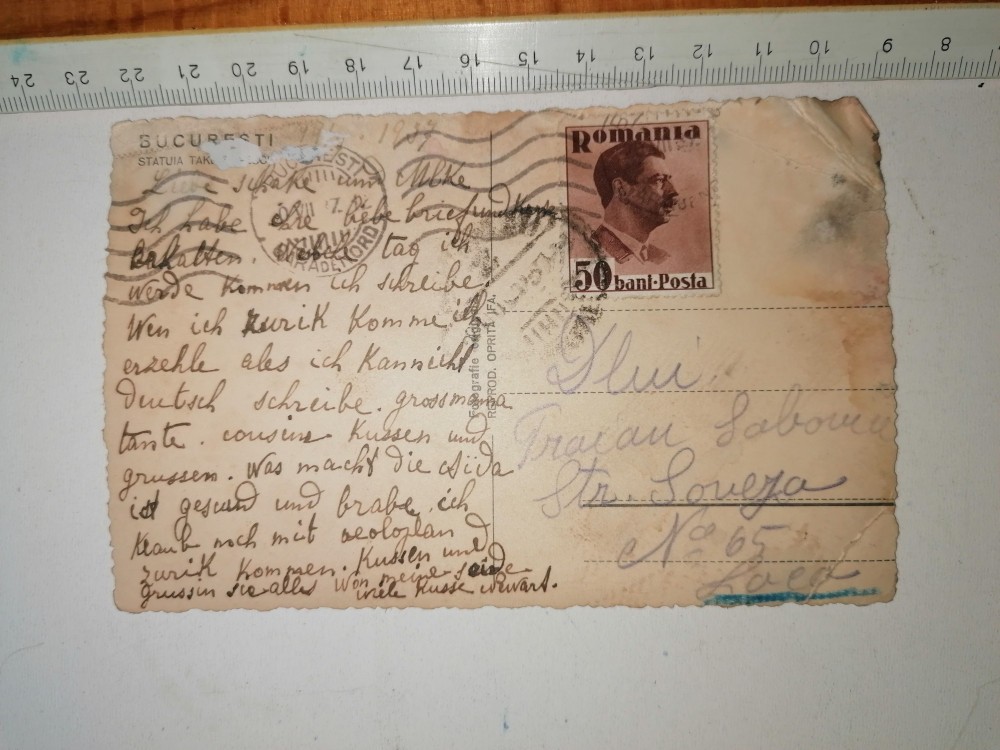 24 23 22 21 20 19 18 17 16 15 14 13 12 11 10 9 8
BUCUREȘTI
1937
STATUIA TAK
Liebe und
Ich habe ihre liebe brief und Karte
erhalten. tag ich
werde kommen ich schreibe.
Wen ich zurik komme ich
erzehle ales ich kannicht
Deutsch schreibe. grossmama
tante. cousine Kussen und
grussen. Was macht die Aida
ist gesund und brabe. ich
Klaub noch mit aeoloplan
zurik kommen. Kussen und
grussen sie alles Won meine seide
viele Kusse
Romania
50 bani·Posta
BUCUREȘTI
GARA DE NORD
Fotografie
REPROD. OPRITĂ IFA.
Dlui
Traian
Str. Soveja
No 65
Loco